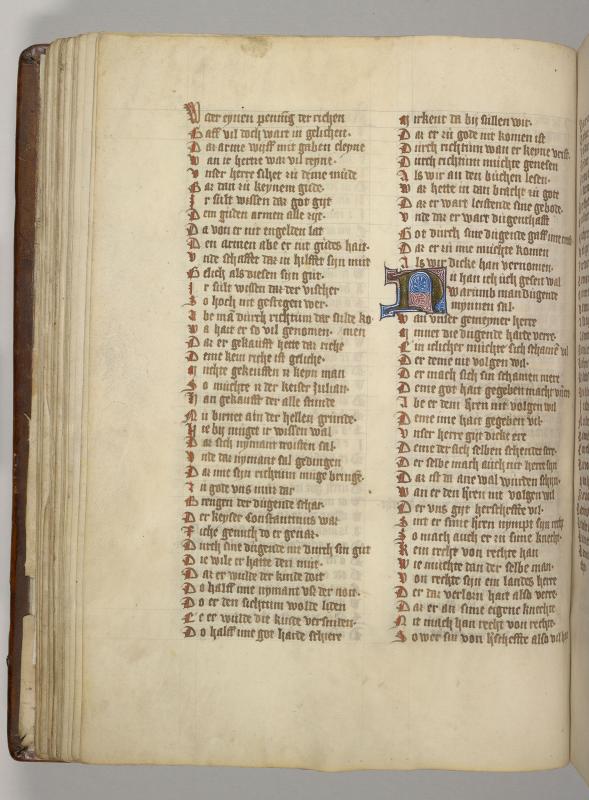 W eder eynen pennig der richen
G aff vil doch wart in gelichet.
D az arme wijff mit gaben cleyne
W an ir hertze was vil reyne.
V nser herre sihet zu deme mude
G ar dan zu keynem gude.
J r sult wissen daz got git
D em guden armen alle zijt.
D a von er nit engelden lat
D en armen abe er nit gudes hait.
V nde schaffet daz in hilffet sijn mut
G elich als diesen sijn gut.
J r sult wissen daz der vischer
S o hoch nit gestegen wer.
A be man durch richtum daz sulde ko
W a hait er so vil genomen. men
D az er gekaufft hette daz riche
D eme kein riche ist geliche.
M ochte gekeuffen ir keyn man
S o muchte ir der keiser Julian.
H an gekaufft der alle stunde
N u birnet ain der hellen grunde.
H ie bij muget ir wissen wal
D az sich nymant troisten sal.
V nde daz nymant sal gedingen
D az mit sijn richtum muge bringen.
Z u gode vns nuir dar
B rengen der dugende schar.
D er keyser Constantinus was
R iche genuch do er genas.
D urch sine dugende nit durch sin gut
D ie wile er hatte den mut.
D az er wulde der kinde doit
D o halff ime nymant vsz der noit.
D o er den sichtum wolde liden
E e er wulde die kinde versniden.
D o halff ime got harde schiere
M irkent da bij sullen wir.
D az er zu gode nit komen ist
D urch richtum wan er keyne verist.
D urch richtum muchte genesen
A ls wir an den buchen lesen.
W az hette in dan bracht zu gote
D az er wart leistende sine gebode.
V nde daz er wart dugenthafft
G ot durch sine dugende gaff ime craft
D az er zu ime muchte komen
A ls wir dicke han vernomen.
N u han ich uch geseit wal
warumb man dugende
mynnen sal.
W an vnser gemeyner herre
M inner die dugende harte verre.
E in iclicher muchte sich schamen vil
D er deme nit volgen wil.
D er mach sich sin schamen mere
D eme got hait gegeben macht vnd ere
A be er dem heren nit volgen wil
D eme ime hait gegeben vil.
V nser herre git dicke ere
D eme der sich selben schendet sere.
D er selbe mach auch nit herre sijn
D az ist dir ane wal wurden schijn.
W an er den heren nit volgen wil
D er vns git herscheffte vil.
S int er sime heren nympt sijn recht
S o mach auch er zu sime knecht.
K ein recht von rechte han
W ie muchte dan der selbe man.
V on rechte sijn ein landes herre
D er daz verlorn hait also verre.
D az er an sime eigene knechte
N it mach han recht von rechte.
S o wer sin von herscheffte also vil hat